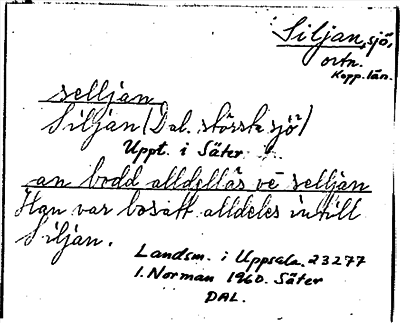 Siljan, sjö,
ortn.
Kopp. län.
selljan
Siljan (Dal. största sjö)
Uppt. i Säter
an bodd alldellas ve selljan
Han var bosatt alldeles intill
Siljan.
Landsm. i Uppsala. 23277
I. Norman 1960. Säter
DAL.